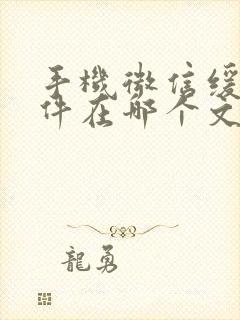 手機微信緩
件在哪个文
龍勇